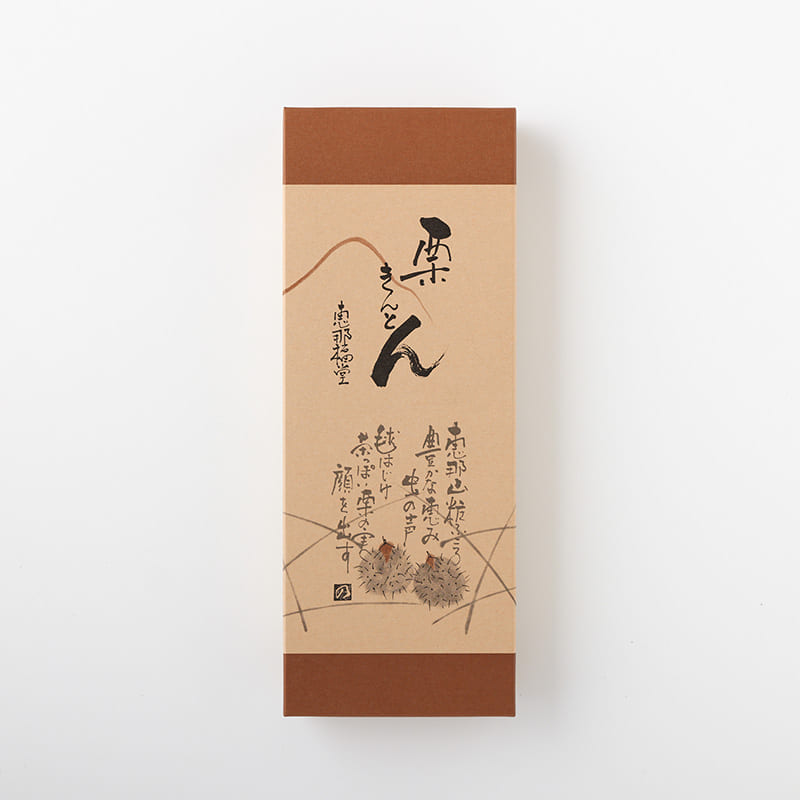 栗
きんとん
恵那福堂
恵那山粧ふころ
豊かな恵み
虫の声
毬はじけ
茶っぽい栗の実
顔を出す